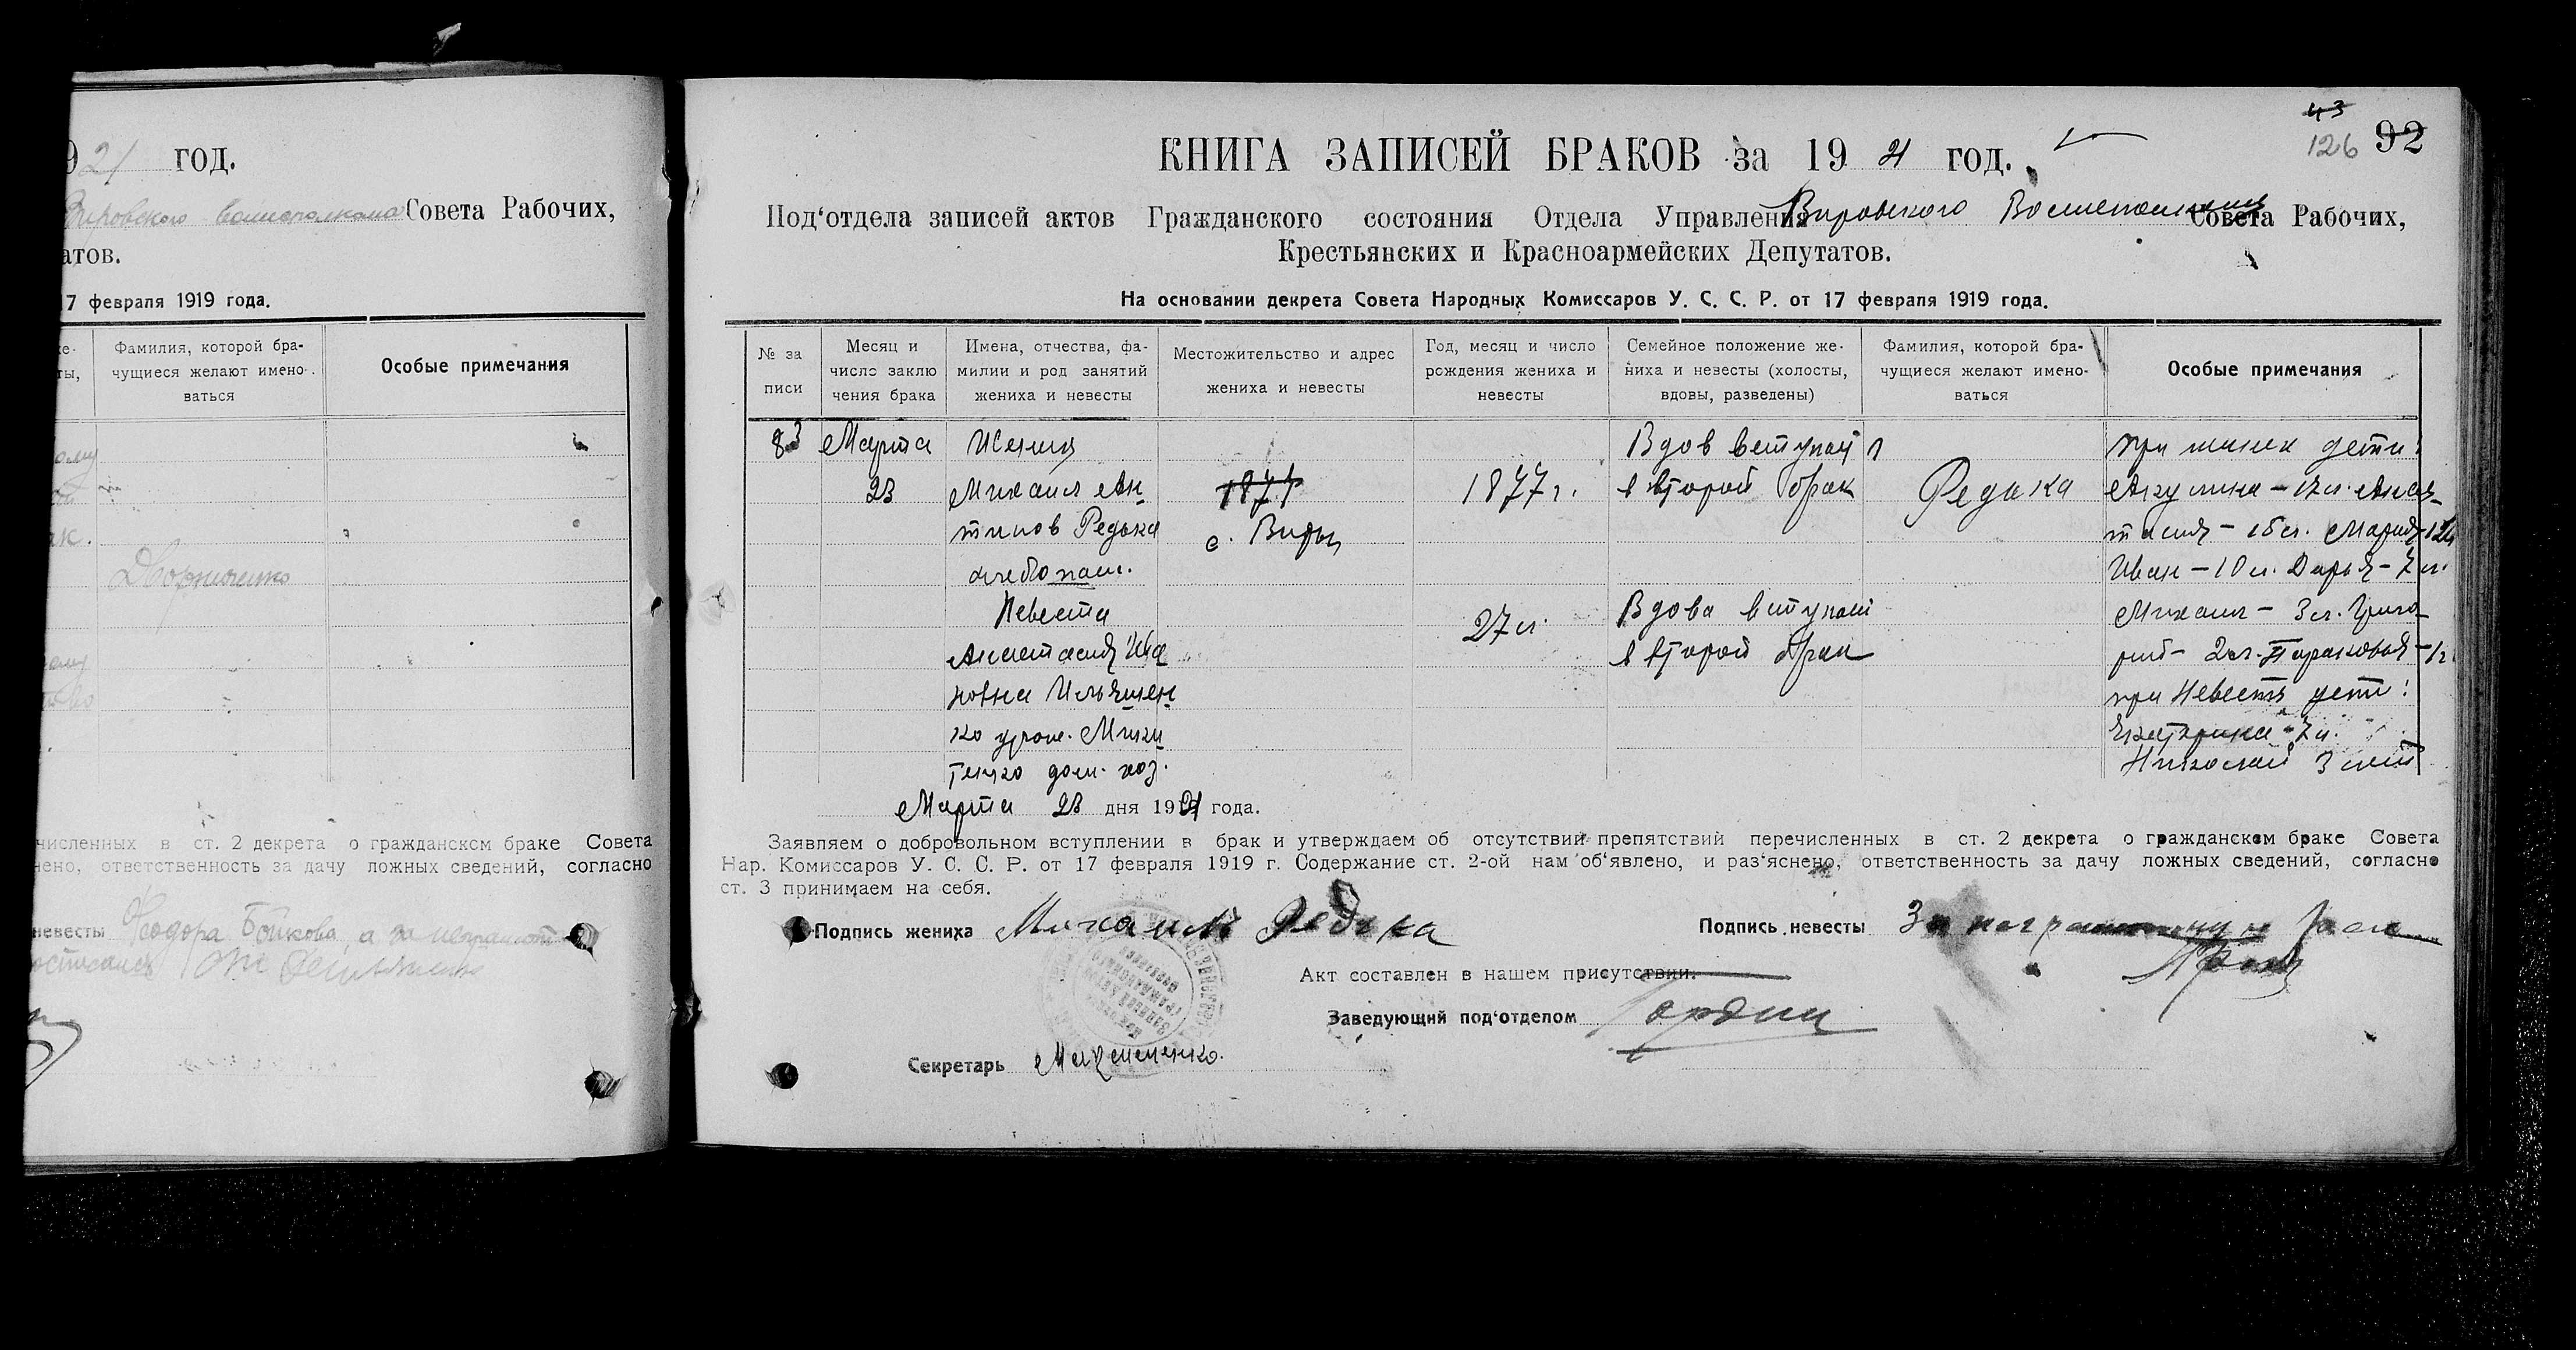 21 год.
Вировского Волисполкома Совета Рабочих,
атов.
17 февраля 1919 года.
Фамилия, которой бра-
чущиеся желают имено-
ваться
Особые примечания
численных в ст. 2 декрета о гражданском браке Совета
нено, ответственность за дачу ложных сведений, согласно
невесты Феодора Бойкова, а за неграмотн
43
126 92
КНИГА ЗАПИСЕЙ БРАКОВ за 19 21 год.
Под'отдела записей актов Гражданского состояния Отдела Управления Вировского Волисполкома Совета Рабочих,
Крестьянских и Красноармейских Депутатов.
На основании декрета Совета Народных Комиссаров У. С. С. Р. от 17 февраля 1919 года.
№ за
писи
Месяц и
число заклю
чения брака
Имена, отчества, фа-
милии и род занятий
жениха и невесты
Местожительство и адрес
жениха и невесты
Год, месяц и число
рождения жениха и
невесты
Семейное положение же-
ниха и невесты (холосты,
вдовы, разведены)
Фамилия, которой бра-
чущиеся желают имено-
ваться
Особые примечания
83
Марта
23
Жених
Михаил Ан
типов Редька
хлебопаш.
Невеста
Анастасия Ива
новна Ильяшен
ко урож. Мики
тенко дом. хоз.
1877
с. Виры
1877 г.
27 л.
Вдов вступает
в второй брак
Вдова вступает
в второй брак
Редька
при жених дети:
Акулина - 17 л. Анас
тасия - 15 л. Мария - 12 л
Иван - 10 л. Дарья - 7 л.
Михаил - 3 л. Григо
рий - 2 л. Параковья - 1 г.
при Невесте дети:
Екатерина - 7 л.
Николай 3 лет
Марта 23 дня 1921 года.
Заявляем о добровольном вступлении в брак и утверждаем об отсутствии препятствий перечисленных в ст. 2 декрета о гражданском браке Совета
Нар. Комиссаров У. С. С. Р. от 17 февраля 1919 г. Содержание ст. 2-ой нам об'явлено, и раз'яснено, ответственность за дачу ложных сведений, согласно
ст. 3 принимаем на себя.
Подпись жениха Михаилъ Редька
Подпись невесты За неграмотную
Акт составлен в нашем присутствии.
Заведующий под'отделом
Секретарь